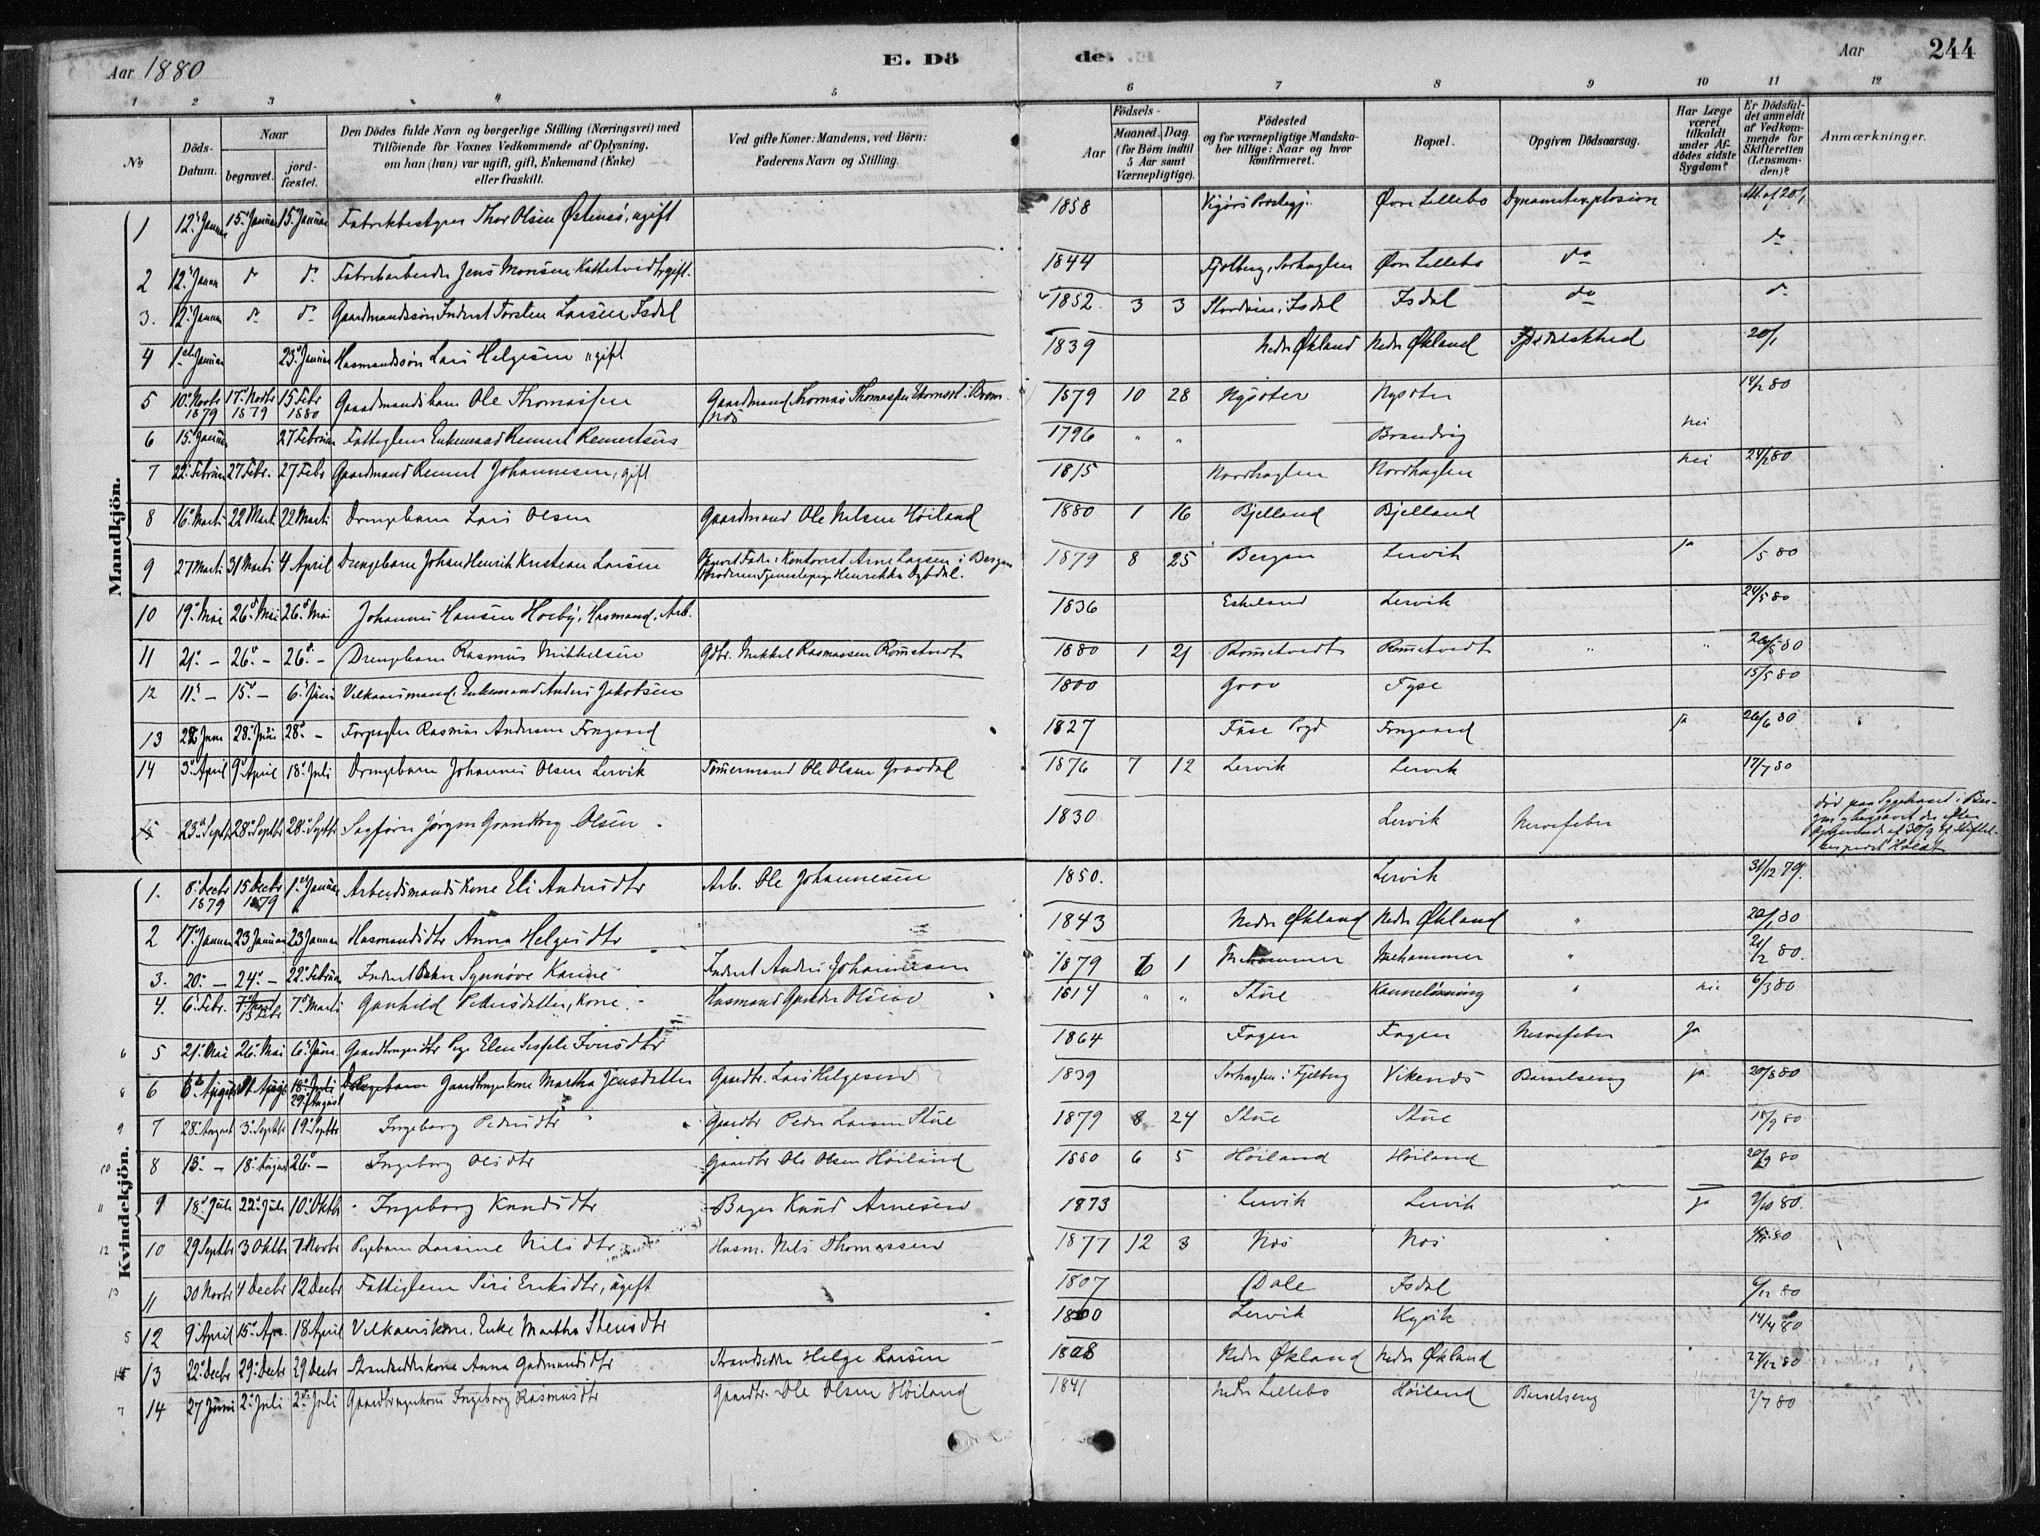 Aar 1880
E. Dö
de.
Aar
244
1 2 3 4 5 6 7 8 9 10 11 12
No
Döds-Datum.
Naar
begravet.
jord-fæstet.
Den Dödes fulde Navn og borgerlige Stilling (Næringsvei) med
Tilföiende for Voxnes Vedkommende af Oplysning,
om han (hun) var ugift, gift, Enkemand (Enke)
eller fraskilt.
Ved gifte Koner: Mandens, ved Börn:
Faderens Navn og Stilling.
Födsels-
Aar
Maaned. Dag.
(for Börn indtil 5 Aar samt Værnepligtige).
Födested
og for værnepligtige Mandskaber tillige: Naar og hvor konfirmeret.
Bopæl.
Opgiven Dödsaarsag.
Har Læge været tilkaldt under Afdödes sidste Sygdom?
Er Dödsfaldet anmeldt af Vedkommende for Skifteretten (Lensmanden)?
Anmærkninger.
Mandkjön.
1 12 Januar 15 Januar 15 Januar Fabrikbestyrer Thor Olsen Østensø, ugift 1858 Vigørs Præstegj. Øvre Lillebo Dynamitexplosion
2 12 Januar do do Fabrikarbeider Jens Monsen Kattetvedt, gift. 1844 Fjelberg, Sørhuglen Øvre Lillebo do do
3. 12 Januar do do Gaardmandssøn Inderst Torsten Larsen Isdal 1852. 3 3 Storøen, Isdal Isdal do do
4 1 Januar 23 Januar Husmandssøn Lars Helgesen ugift 1839 Nedre Økland Nedre Økland 20/1
5 10 Novbr 1879 17 Novbr 1879 15 Febr 1880 Gaardmandsbarn Ole Thomassen Gaardmand Thomas Thomassen 1879 10 28 Nysæter Nysæter 14/2 80
6 15 Januar 27 Februar Fattiglem Enkemand Reinert Reinertsen 1796 " " Brandvig nei
7 22 Februar 27 Febr. 27 Febr Gaardmand Reinert Johannesen, gift 1815 Nordhuglen Nordhuglen nei 24/2 80
8 16 Marti 22 Marti 22 Marti Drengebarn Lars Olsen Gaardmand Ole Nilsen Høiland 1880 1 16 Bjelland Bjelland
9 27 Marti 31 Marti 4 April Drengebarn Johan Henrik Kristian Larsen Opgivet Fader: Kontorist Arne Larsen i Bergen 1879 8 25 Bergen Lervik ja 1/5 80
10 19 Mai 26 Mai 26 Mai Johannes Hansen Hoeby, Husmand, Arb. 1836 Eskeland Lervik 24/5 80
11 21 – 26 – 26 – Drengebarn Rasmus Mikkelsen Gdbr. Mikkel Rasmussen Rometvedt 1880 1 21 Rometvedt Rometvedt " " 26/5 80
12 11 – 15 – 6 Juni Vilkaarsmand, Enkemand Anders Jakobsen 1800 Grov Tyse 15/5 80
13 22 Juni 28 Juni 28 – Forpagter Rasmus Andersen Frugaard 1827 Fuse Prgd Frugaard ja 26/6 80
14 3 April 9 April 18 Juli Drengebarn Johannes Olsen Lervik Tømermand Ole Olsen Gravdal 1876 7 12 Lervik Lervik 17/7 80
15 23 Septbr 28 Septbr 28 Septbr Sagfører Jørgen Olsen 1830 Lervik Nervefeber død paa Sygehuset i Ber-
Kvindekjön.
1. 8 Decbr 1879 15 Decbr 1879 1 Januar Arbeidsmands Kone Eli Andersdtr Arb. Ole Johannesen 1850. Lervik 31/12 79.
2 17 Januar 23 Januar 23 Januar Husmandsdtr Anna Helgesdtr 1843 Nedre Økland Nedre Økland " 20/1 80
3. 20 – 24 – 22 Februar Inderst Barn Synnøve Karine Inderst Anders Johannesen 1879 6 1 Mehammer Mehammer " 21/2 80.
4. 6 Febr. 13 Febr 7 Marti Gunhild Pedersdatter, Kone Husmand 1814 " " Støle " nei 6/3 80
6 5 21 Mai 26 Mai 6 Juni Pige Elen Iversdtr 1864 Fagen Fagen Nervefeber Ja
8 6 29 August Gaardbrugerkone Martha Jensdatter Gaardbr. Lars Helgesen 1839 Sørhuglen i Fjelberg Vikenes Barselseng ja 20/8 80
9 7 28 August 3 Septbr 19 Septbr Ingeborg Pedersdtr Gaardbr Peder Larsen Støle 1879 8 24 Støle Støle 18/9 80
10 8 13 – 18 August 26 – Ingeborg Olsdtr Gaardbr Ole Olsen Høiland 1880 6 5 Høiland Høiland 20/9 80
11 9 18 Juli 22 Juli 10 Oktbr Ingeborg Knudsdtr Bager Knud Arnesen 1873 Lervik Lervik ja 9/10 80.
12 10 29 Septbr 3 Oktbr 7 Novbr Pigebarn Larsine Nilsdtr Husm. Nils Thomassen 1877 12 3 Nøs Nøs
13 11 30 Novbr 4 Decbr 12 Decbr Fattiglem Siri Eriksdtr, ugift 1807 Dale Isdal 6/12 80
5 12 9 April 15 Apr. 18 April Vilkaarskone, Enke Martha Stensdtr 1800 Lervik Kyvik 14/4 80
14 13 22 Decbr 29 Decbr 29 Decbr Strandsidderkone Anna Gudmundsdtr Strandsidder Helge Larsen 1808 Nedre Økland Nedre Økland 27/12 80
7 14 27 Juni 2 Juli 2 Juli Gaardbrugerkone Ingeborg Rasmusdtr Gaardbr. Ole Olsen Høiland 1841 Nedre Lillebo Høiland Barselseng 2/7 80